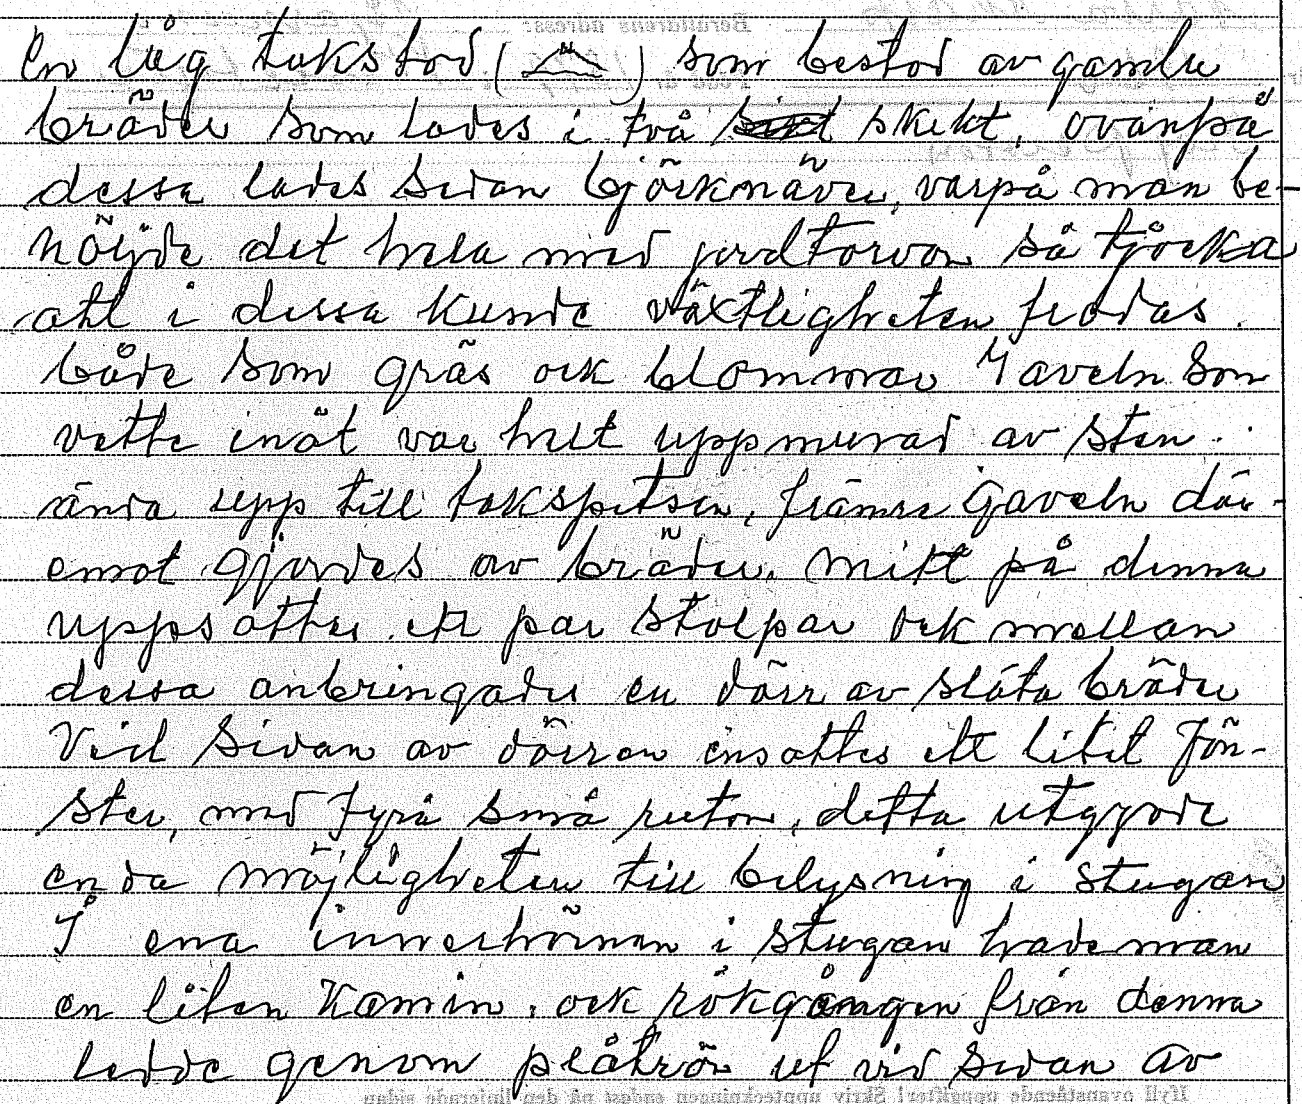 En låg takstod ( ) som bestod av gamla
bräder som lades i två skikt, ovanpå
dessa lades sedan björknäver, varpå man be-
höljde det hela med jordtorvor så tjocka
att i dessa kunde växtligheten frodas.
både som gräs ock blommor Gaveln som
vette inåt var helt uppmurad av sten.
ända upp till takspetsen, främre gaveln där-
emot gjordes av bräder. mitt på denna
uppsattes ett par stolpar ock mellan
dessa anbringades en dörr av släta bräder
Vid sidan av dörren insattes ett litet fön-
ster, med fyra små rutor, detta utgjorde
enda möjligheten till belysning i stugan
I ena innerhörnan i stugan hade man
en liten kamin, ock rökgången från denna
ledde genom plåtrör ut vid sidan av